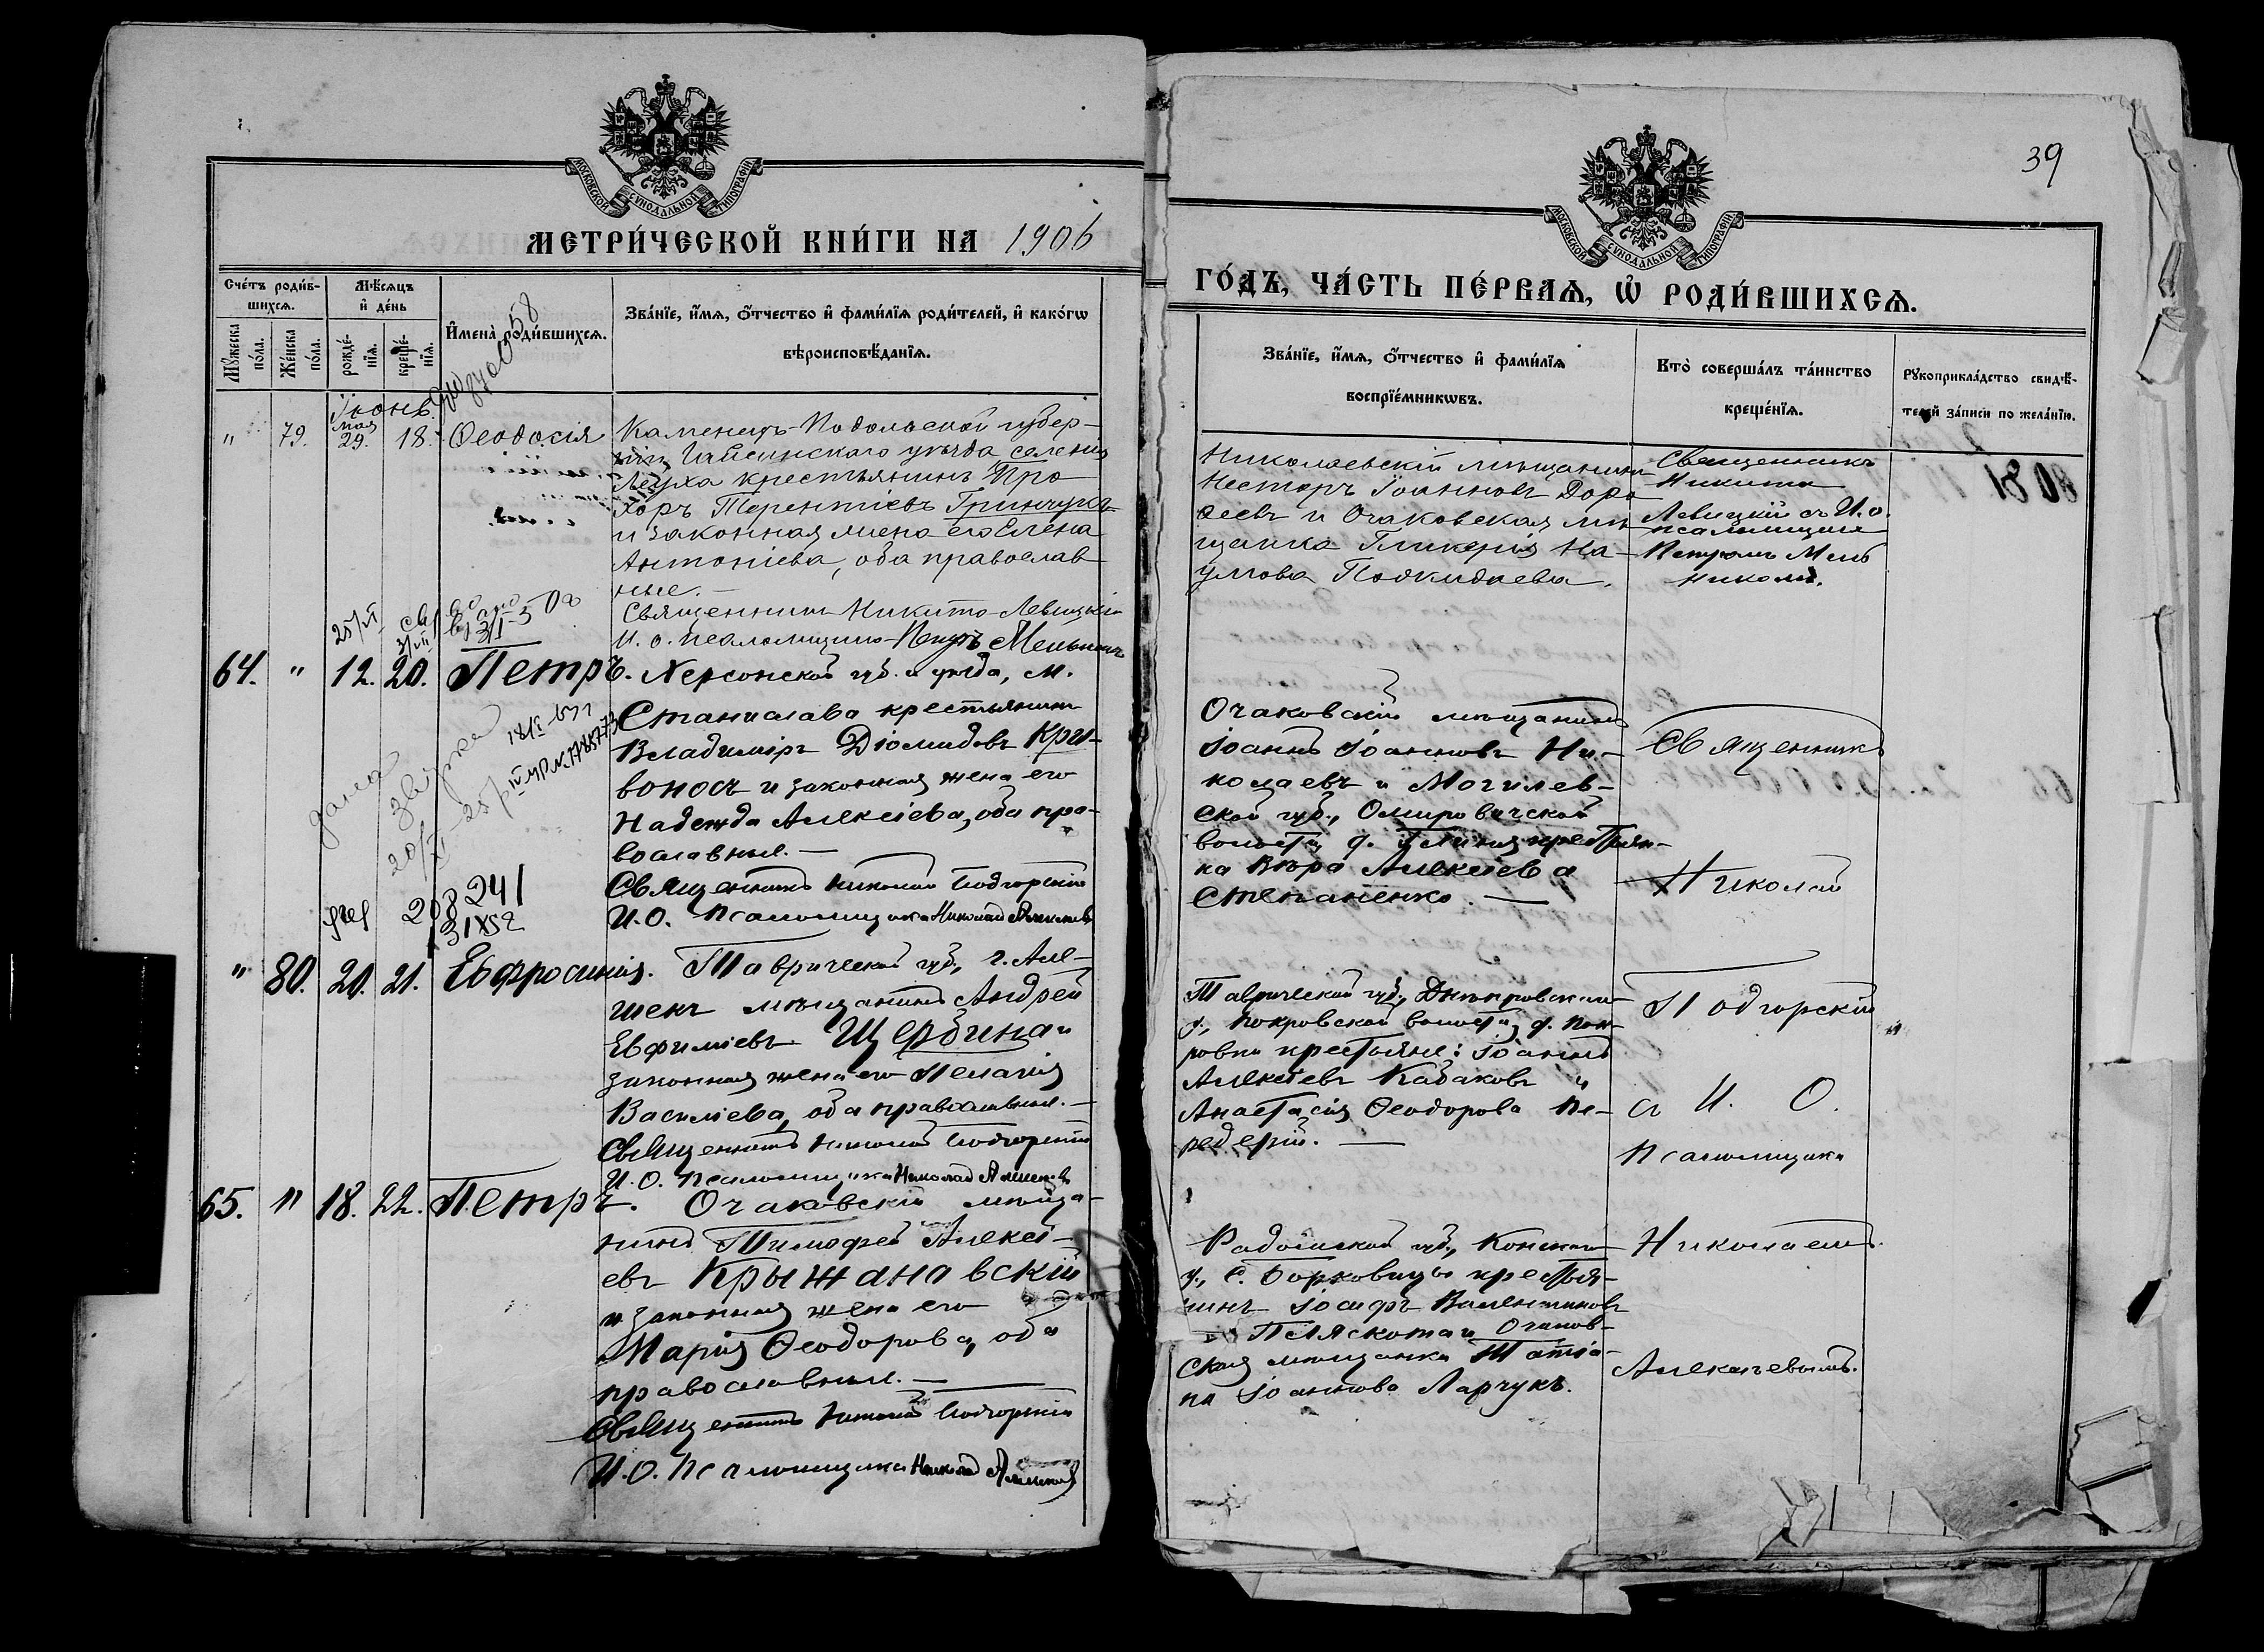 МОСКОВСКОЙ СѴНОДАЛЬНОЙ ТИПОГРАФІИ
МЕТРИ́ЧЕСКОЙ КНИ́ГИ НА 1906
Сче́тъ роди́в-
шихся.
Мѣ́сяцъ
и҆ де́нь
И҆мена̀ роди́вшихся.
Зва́нїе, и҆́мѧ, ѻ҆́тчество и҆ фами́лїѧ роди́телей, и҆ како́гѡ
вѣроисповѣ́данїѧ.
Мꙋ́жеска по́ла.
Же́нска по́ла.
рожде́-
нїѧ.
креще́-
нїѧ.
58
Іюнь.
" 79. мая 29. 18. Ѳеодосія
Каменецъ-Подольской губер-
ніи, Гайсинскаго уѣзда селенія
Леуха крестьянинъ Про
хоръ Терентіевъ Гринчукъ
и законная жена его Елена
Антоніева, оба православ
ные.—
Священникъ Никита Левицкій
И. о. псаломщика Петръ Мельников
64. " 12. 20. Петръ. Херсонской губ. и уѣзда, м.
Станислава крестьянинъ
Владиміръ Діомидовъ Кри-
воносъ и законная жена его
Надежда Алексіева, оба пра-
вославные.—
Священникъ Николай Подгорскій
И. О. Псаломщика Николай Алексѣевъ
208 241
" 80. 20. 21. Евфросинія. Таврической губ., г. Але-
шекъ мѣщанинъ Андрей
Евфиміевъ Щербина и
законная жена его Пелагія
Василіева, оба православные.—
Священникъ Николай Подгорскій
И. О. Псаломщика Николай Алексѣевъ
65. " 18. 22. Петръ. Очаковскій мѣща-
нинъ Тимофей Алексі-
евъ Крыжановскій
и законная жена его
Марія Ѳеодорова, оба
православные.—
Священникъ Николай Подгорскій
И. О. Псаломщика Николай Алексѣевъ
39
МОСКОВСКОЙ СѴНОДАЛЬНОЙ ТИПОГРАФІИ
ГО́ДЪ, ЧА́СТЬ ПЕ́РВАѦ, Ѡ҆ РОДИ́ВШИХСѦ.
Зва́нїе, и҆́мѧ, ѻ҆́тчество и҆ фами́лїѧ
воспрїе́мникѡвъ.
Кто̀ соверша́лъ та́инство
креще́нїѧ.
Рꙋкоприкла́дство свидѣ́-
телей за́писи по жела́нїю.
Николаевскій мѣщанинъ
Несторъ Іоанновъ Доро
ѳеевъ и Очаковская мѣ-
щанка Гликерія На-
умова Подкидаева.
Священникъ
Никита
Левицкій съ И. о.
псаломщика
Петромъ Мель
никомъ.
Очаковскій мѣщанинъ
Іоаннъ Іоанновъ Ни-
колаевъ и Могилев-
ской губ.,
волости, д. крестьян-
ка Вѣра Алексіева
Степаненко.—
Священникъ
Николай
Таврической губ., Днѣпровскаго
у., Покровской волости, д. Пок-
ровки крестьяне: Іоаннъ
Алексіевъ Кабаковъ и
Анастасія Ѳеодорова Пе-
редерій.—
Подгорскій
съ И. О.
Псаломщика
Радомской губ., Конскаго
у., с. Борковицы крестья-
нинъ Іосифъ Валентиновъ
Пляскота и Очаков-
ская мѣщанка Татіа-
на Іоаннова Ларчукъ.
Николаемъ
Алексѣевымъ.